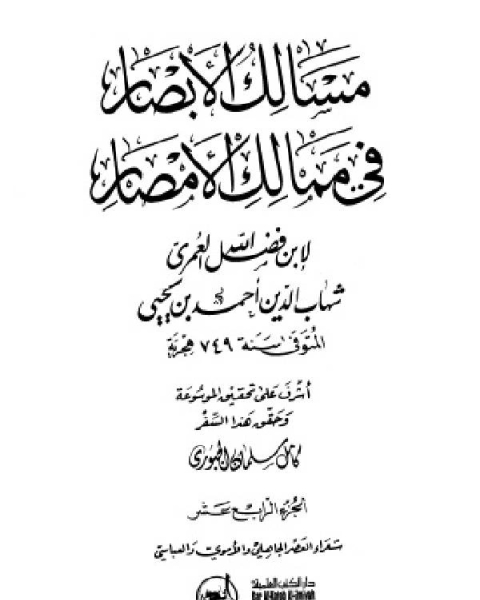 مَسَالِكُ الأَبْصَارِ
فِي مَمَالِكِ الأَمْصَارِ
لابن فضل الله العمري
شهاب الدين أحمد بن يحيى
المتوفى سنة ٧٤٩ هجرية
أشرف على تحقيق الموسوعة
وحقق هذا السفر
كامل سلمان الجبوري
الجزء الرابع عشر
شعراء العصر الجاهلي والأموي والعباسي
دار الكتب العلمية
Dar Al-Kotob Al-ilmiyah